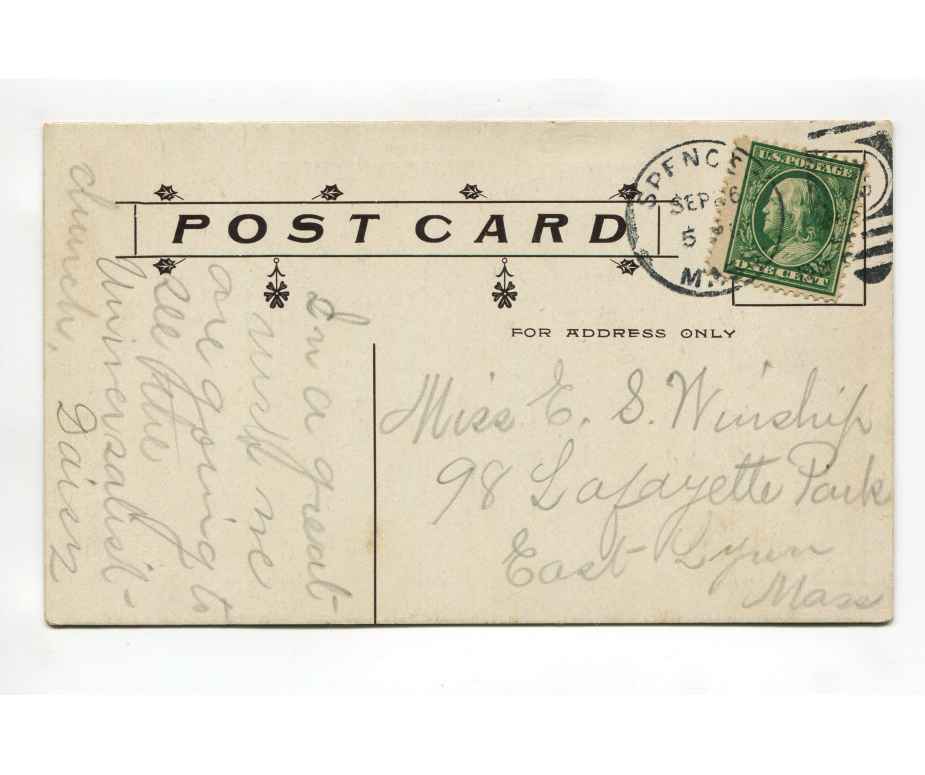 POST CARD
SPENCER
SEP 6
5
U.S. POSTAGE
ONE CENT
FOR ADDRESS ONLY
In a great
rush we
are going to
see the
Universalist
church.
Daisy
Miss E. S. Winship
98 Lafayette Park
East Lynn
Mass